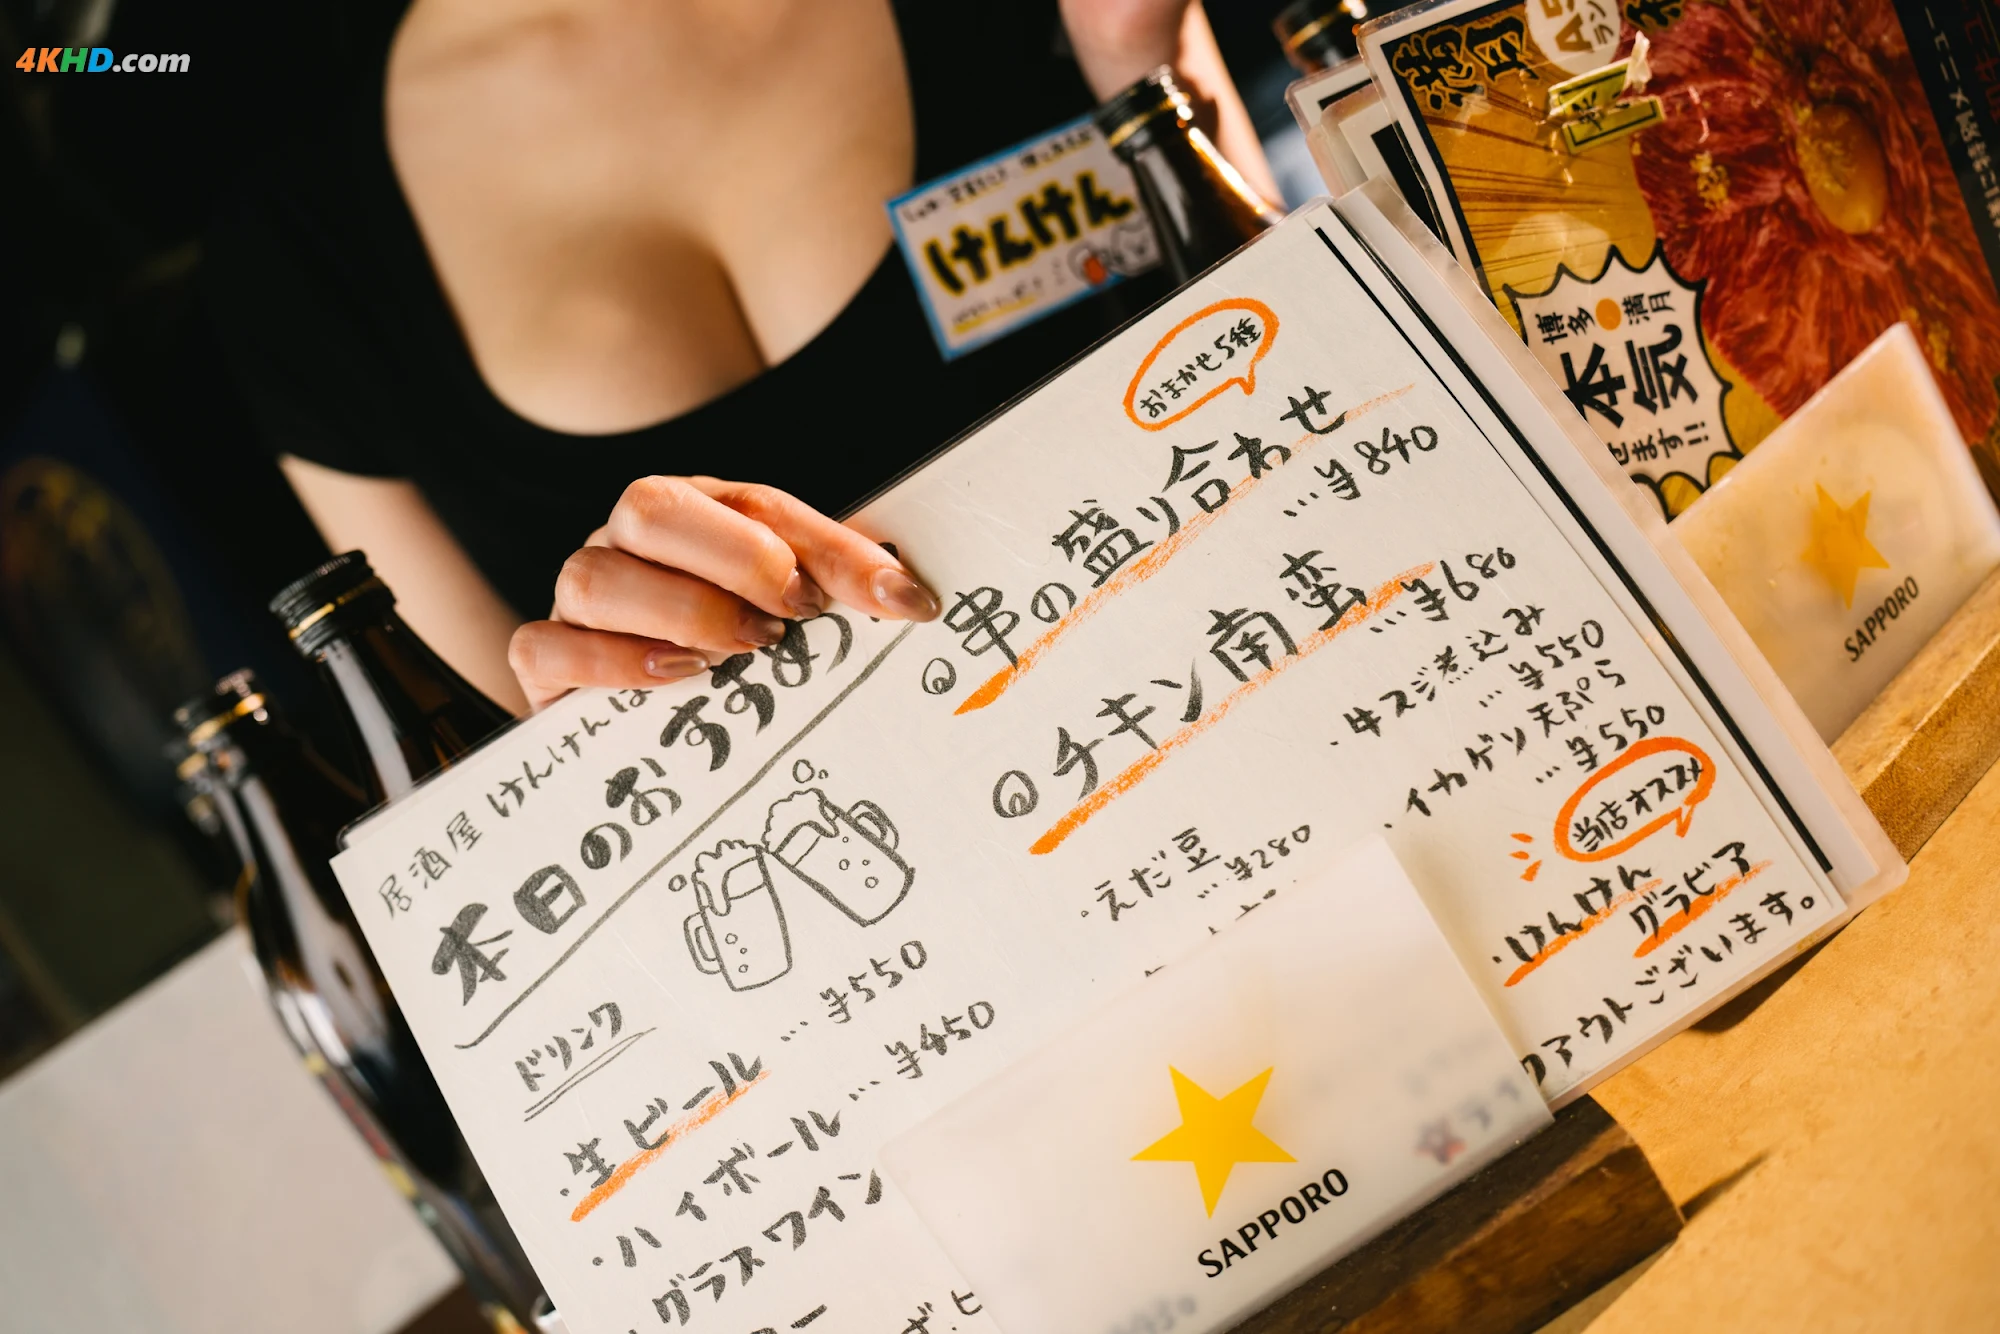 4KHD.com
けんけん
満月
博多 満月
本気
せます!!
SAPPORO
居酒屋 けんけんは
本日のおすすめ!
ドリンク
・生ビール … ¥550
・ハイボール … ¥450
グラスワイン
おまかせ5種
串の盛り合わせ
… ¥840
チキン南蛮
… ¥680
・えだ豆
… ¥280
・牛スジ煮込み
… ¥550
・イカゲソ天ぷら
… ¥550
当店オススメ
・けんけん
グラビア
クアウトございます。
SAPPORO